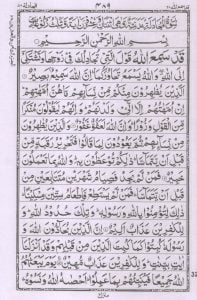 ۴۸۹
بِسْمِ اللّٰهِ الرَّحْمٰنِ الرَّحِيْمِ
قَدْ سَمِعَ اللّٰهُ قَوْلَ الَّتِيْ تُجَادِلُكَ فِيْ زَوْجِهَا وَتَشْتَكِيْٓ
اِلَى اللّٰهِ وَاللّٰهُ يَسْمَعُ تَحَاوُرَكُمَا اِنَّ اللّٰهَ سَمِيْعٌۢ بَصِيْرٌ
اَلَّذِيْنَ يُظٰهِرُوْنَ مِنْكُمْ مِّنْ نِّسَآئِهِمْ مَّا هُنَّ اُمَّهٰتِهِمْ
اِنْ اُمَّهٰتُهُمْ اِلَّا الّٰٓـِٔيْ وَلَدْنَهُمْ وَاِنَّهُمْ لَيَقُوْلُوْنَ مُنْكَرًا
مِّنَ الْقَوْلِ وَزُوْرًا وَاِنَّ اللّٰهَ لَعَفُوٌّ غَفُوْرٌ وَالَّذِيْنَ يُظٰهِرُوْنَ
مِنْ نِّسَآئِهِمْ ثُمَّ يَعُوْدُوْنَ لِمَا قَالُوْا فَتَحْرِيْرُ رَقَبَةٍ مِّنْ
قَبْلِ اَنْ يَّتَمَآسَّا ذٰلِكُمْ تُوْعَظُوْنَ بِهٖ وَاللّٰهُ بِمَا تَعْمَلُوْنَ
خَبِيْرٌ فَمَنْ لَّمْ يَجِدْ فَصِيَامُ شَهْرَيْنِ مُتَتَابِعَيْنِ مِنْ
قَبْلِ اَنْ يَّتَمَآسَّا فَمَنْ لَّمْ يَسْتَطِعْ فَاِطْعَامُ سِتِّيْنَ مِسْكِيْنًا
ذٰلِكَ لِتُؤْمِنُوْا بِاللّٰهِ وَرَسُوْلِهٖ وَتِلْكَ حُدُوْدُ اللّٰهِ وَ
لِلْكٰفِرِيْنَ عَذَابٌ اَلِيْمٌ اِنَّ الَّذِيْنَ يُحَآدُّوْنَ اللّٰهَ وَ
رَسُوْلَهٗ كُبِتُوْا كَمَا كُبِتَ الَّذِيْنَ مِنْ قَبْلِهِمْ وَقَدْ اَنْزَلْنَآ
اٰيٰتٍۢ بَيِّنٰتٍ وَلِلْكٰفِرِيْنَ عَذَابٌ مُّهِيْنٌ يَوْمَ يَبْعَثُهُمُ
اللّٰهُ جَمِيْعًا فَيُنَبِّئُهُمْ بِمَا عَمِلُوْا اَحْصٰىهُ اللّٰهُ وَنَسُوْهُ